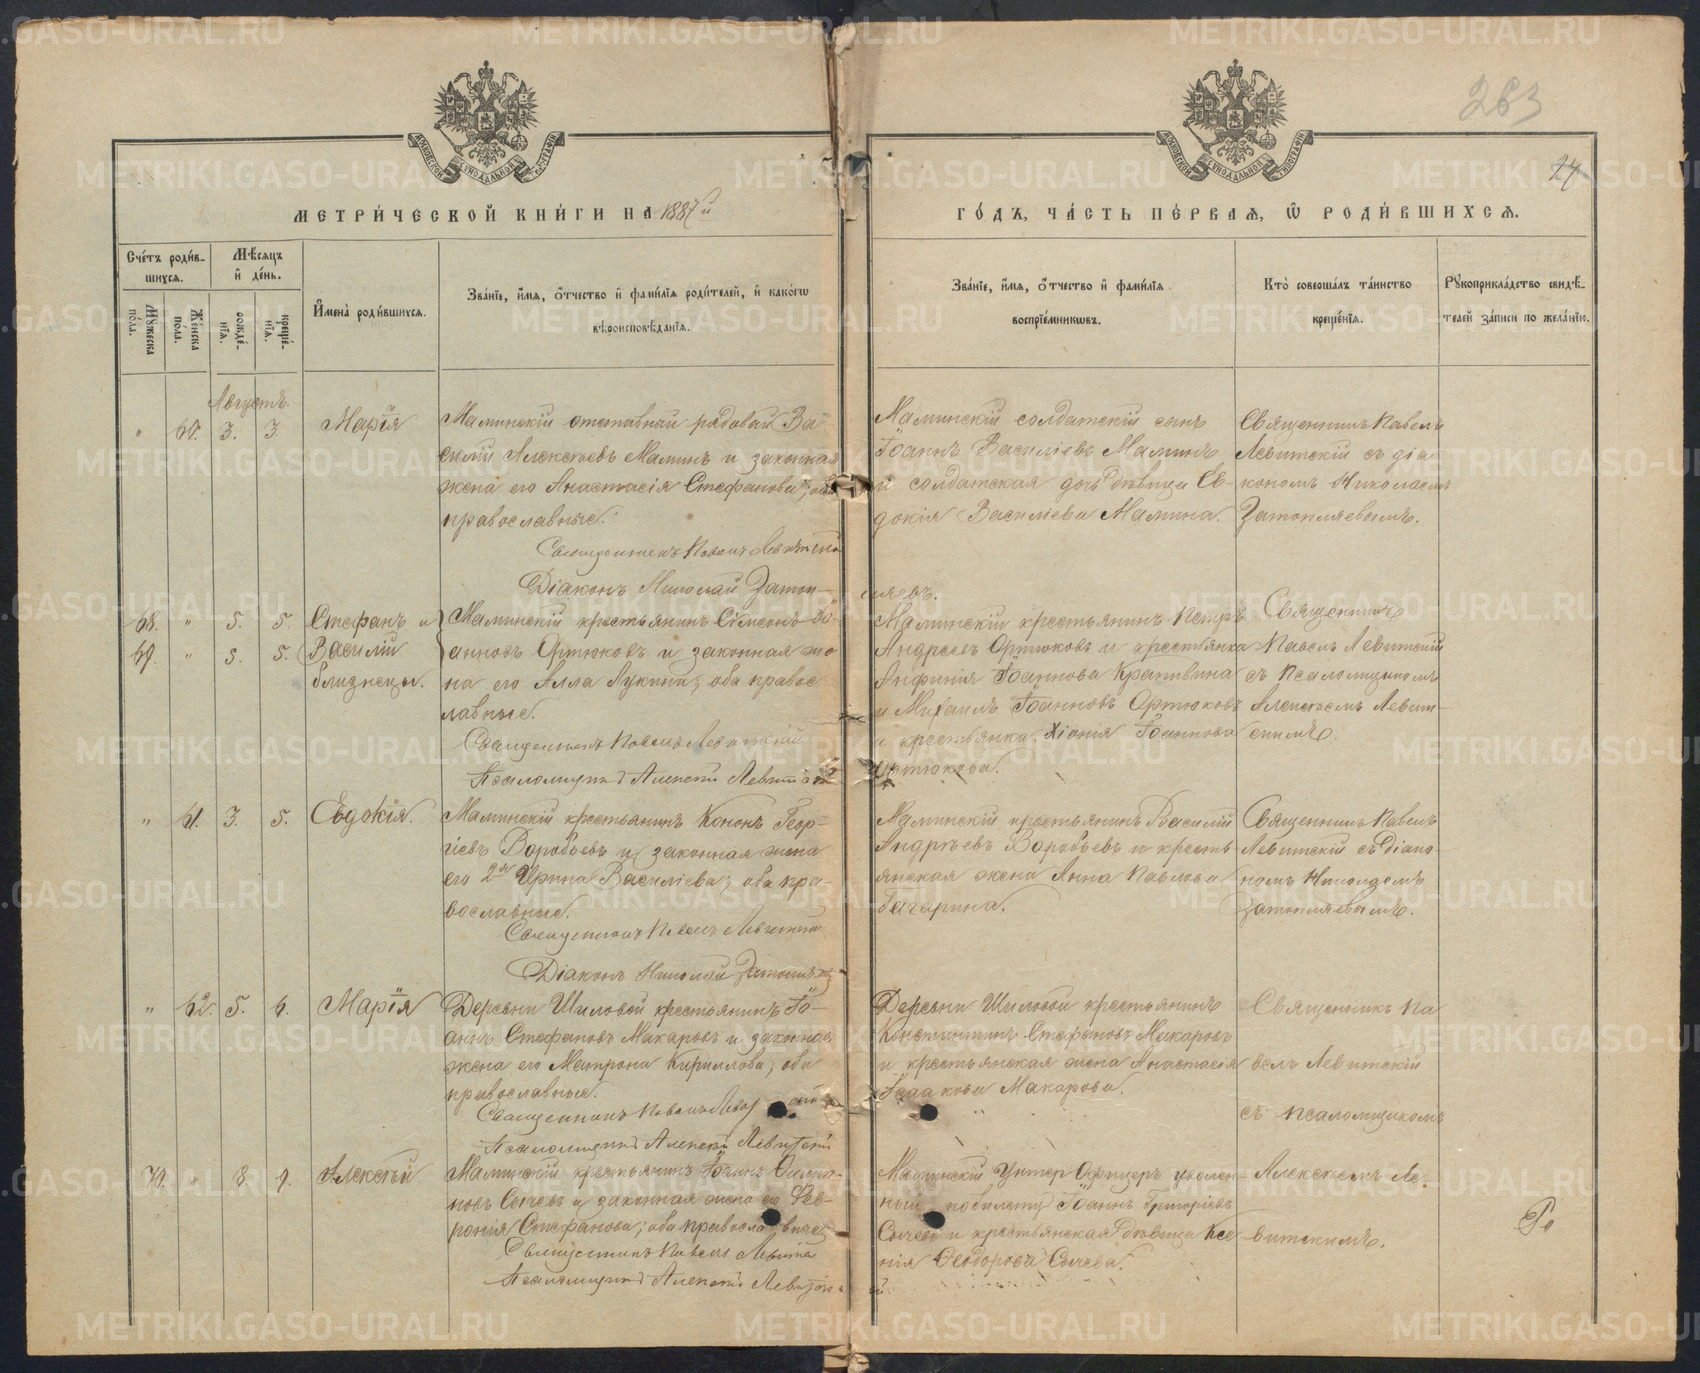 283
27
МЕТРИ́ЧЕСКОЙ КНИ́ГИ НА 1887й
ГО́ДЪ, ЧА́СТЬ ПЕ́РВАЯ, Ѡ РОДИ́ВШИХСЯ.
Сче́тъ роди́в-
шихся.
Мѣ́сяцъ
и де́нь.
Мꙋ́жеска
по́ла.
Же́нска
пола.
рожде́-
нїя.
креще́-
нїя.
И҆мена̀ роди́вшихся.
Зва́нїе, и҆́мя, ѻ҆́тчество и҆ фами́лїя роди́телей, и҆ како́гѡ
вѣроисповѣ́данїя.
Зва́нїе, и҆́мя, ѻ҆́тчество и҆ фами́лїя
воспрїе́мникѡвъ.
Кто̀ соверша́лъ та́инство
креще́нїя.
Рꙋкоприкла́дство свидѣ́-
телей за́писи по жела́нїю.
Августъ.
" 60. 3. 3 Марія
Маминскій отставный рядовый Ва
силій Алексѣевъ Маминъ и законная
жена его Анастасія Стефанова; оба
православные.
Священникъ Павелъ Левитскій
Діаконъ Николай Затоп-
ляевъ.
Маминскій солдатскій сынъ
Іоаннъ Василіевъ Маминъ
и солдатская дочь дѣвица Ев-
докія Василіева Мамина.
Священникъ Павелъ
Левитскій съ діа
кономъ Николаемъ
Затопляевымъ.
68. " 5. 5. Стефанъ и
69. " 5. 5. Василій
близнецы.
Маминскій крестьянинъ Сѵмеонъ Іо-
анновъ Ортюковъ и законная же
на его Алла Лукина; оба правос
лавные.
Священникъ Павелъ Левитскій
Псаломщикъ Алексѣй Левитскій
Маминскій крестьянинъ Петръ
Андреевъ Ортюковъ и крестьянка
Анфинія Іоаннова Крапивина
и Михаилъ Іоанновъ Ортюковъ
и крестьянка Хіонія Іоаннова
Ортюкова.
Священникъ
Павелъ Левитскій
съ псаломщикомъ
Алексѣемъ Левит-
скимъ.
" 61. 3. 5. Евдокія.
Маминскій крестьянинъ Кононъ Геор-
гіевъ Воробьевъ и законная жена
его 2я Ирина Василіева; оба пра-
вославные.
Священникъ Павелъ Левитскій
Діаконъ Николай Затопляевъ
Маминскій крестьянинъ Василій
Андреевъ Воробьевъ и кресть-
янская жена Анна Павлова
Гагарина.
Священникъ Павелъ
Левитскій съ діако-
номъ Николаемъ
Затопляевымъ.
" 62. 5. 6. Марія
Деревни Шиловой крестьянинъ Іо-
аннъ Стефановъ Макаровъ и законная
жена его Матрона Кириллова; оба
православные.
Священникъ Павелъ Левитскій
Псаломщикъ Алексѣй Левитскій
Деревни Шиловой крестьянинъ
Константинъ Стефановъ Макаровъ
и крестьянская жена Анастасія
Исаакова Макарова.
Священникъ Па
велъ Левитскій
съ псаломщикомъ
70. " 8. 9. Алексѣй.
Маминскій крестьянинъ Іоаннъ
новъ Сычевъ и законная жена его Фев-
ронія Стефанова; оба православные
Священникъ Павелъ Левитскій
Псаломщикъ Алексѣй Левитскій
Маминскій Унтеръ Офицеръ уволен-
ный по билету Іоаннъ Григоріевъ
Сычевъ и крестьянская дѣвица Ксе
нія Ѳеодорова Сычева.
Алексѣемъ Ле-
витскимъ.